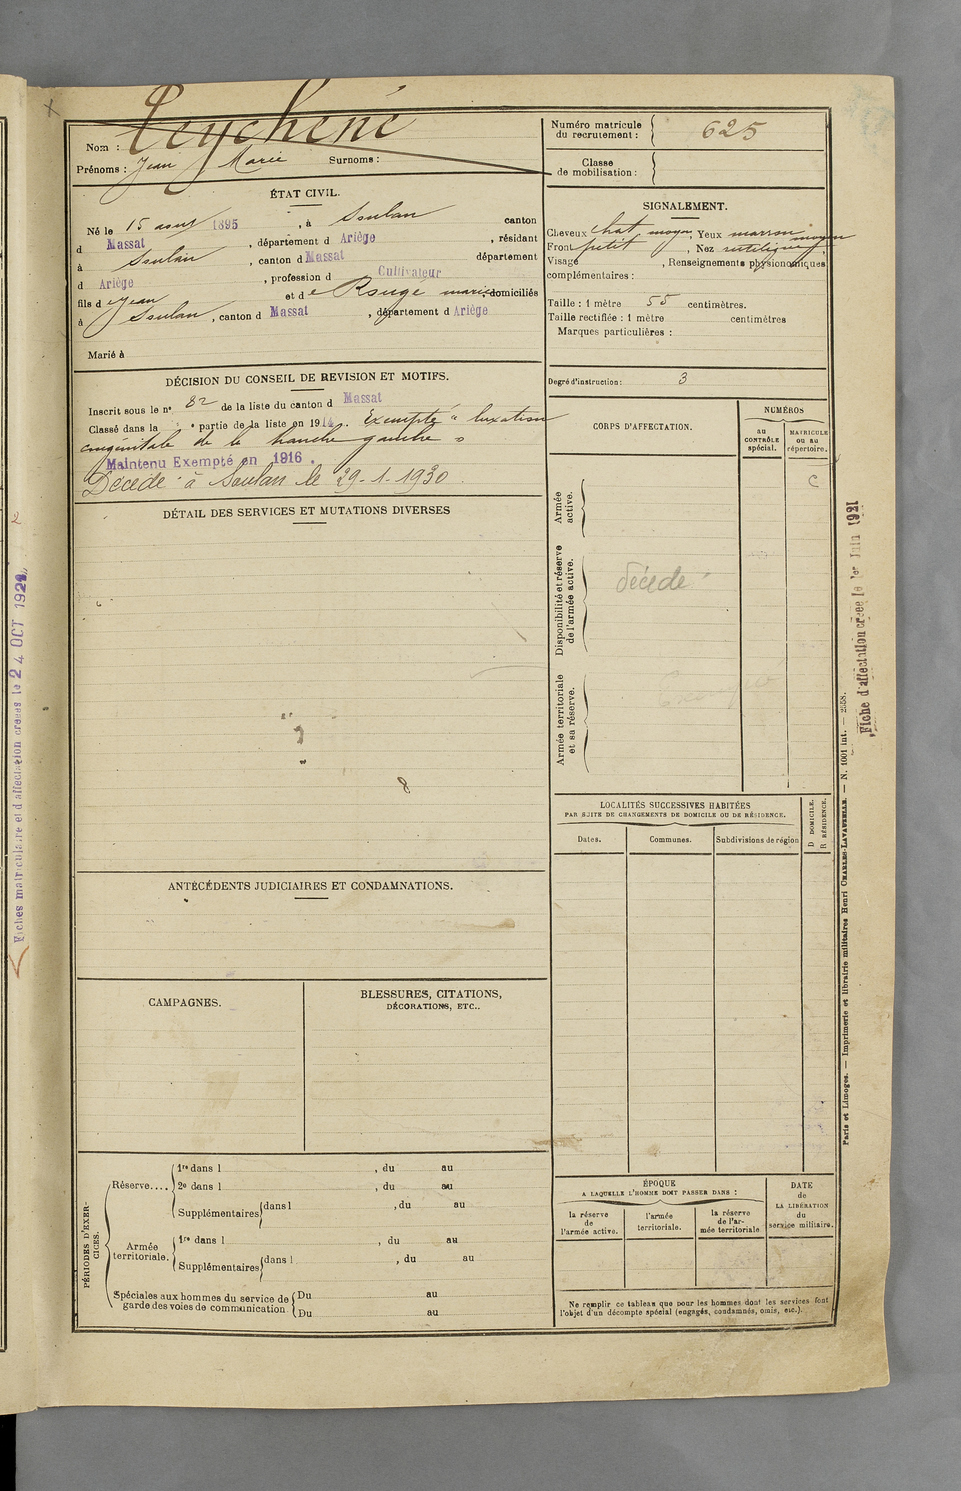 Nom : Teychené
Prénoms : Jean Marie Surnoms :
Numéro matricule du recrutement : 625
Classe de mobilisation :
ÉTAT CIVIL.
Né le 15 aout 1895, à Soulan canton
d Massat, département d Ariège, résidant
à Soulan, canton d Massat département
d Ariège, profession d Cultivateur
fils de Jean et de Rougé marie, domiciliés
à Soulan, canton d Massat, département d Ariège
Marié à
SIGNALEMENT.
Cheveux chat moyen, Yeux marron moyen
Front petit, Nez rectiligne,
Visage , Renseignements physionomiques
complémentaires :
Taille : 1 mètre 55 centimètres.
Taille rectifiée : 1 mètre centimètres
Marques particulières :
Degré d'instruction : 3
DÉCISION DU CONSEIL DE REVISION ET MOTIFS.
Inscrit sous le n° 82 de la liste du canton d Massat
Classé dans la " partie de la liste en 1914. Exempté " luxation
congénitale de la hanche gauche "
Maintenu Exempté en 1916.
Décédé à Soulan le 29-1-1930.
DÉTAIL DES SERVICES ET MUTATIONS DIVERSES
CORPS D'AFFECTATION.
NUMÉROS
au CONTRÔLE spécial.
MATRICULE ou au répertoire.
C
Armée active.
Disponibilité et réserve de l'armée active.
décédé
Armée territoriale et sa réserve.
LOCALITÉS SUCCESSIVES HABITÉES
PAR SUITE DE CHANGEMENTS DE DOMICILE OU DE RÉSIDENCE.
D DOMICILE.
R RÉSIDENCE.
Dates.
Communes.
Subdivisions de région
ANTÉCÉDENTS JUDICIAIRES ET CONDAMNATIONS.
CAMPAGNES.
BLESSURES, CITATIONS,
DÉCORATIONS, ETC..
PÉRIODES D'EXERCICES.
Réserve....
1re dans l , du au
2e dans l , du au
Supplémentaires dans l , du au
Armée territoriale.
1re dans l , du au
Supplémentaires dans l , du au
Spéciales aux hommes du service de
garde des voies de communication.
Du au
Du au
ÉPOQUE
A LAQUELLE L'HOMME DOIT PASSER DANS :
la réserve de l'armée active.
l'armée territoriale.
la réserve de l'armée territoriale
DATE de LA LIBÉRATION du service militaire.
Ne remplir ce tableau que pour les hommes dont les services font
l'objet d'un décompte spécial (engagés, condamnés, omis, etc.).
Paris et Limoges. — Imprimerie et librairie militaires Henri CHARLES-LAVAUZELLE. — N. 1001 int. — 2558.
Fiche d'affectation créée le 1er Juin 1921
Fiches matriculaire et d'affectation créées le 24 OCT 1929